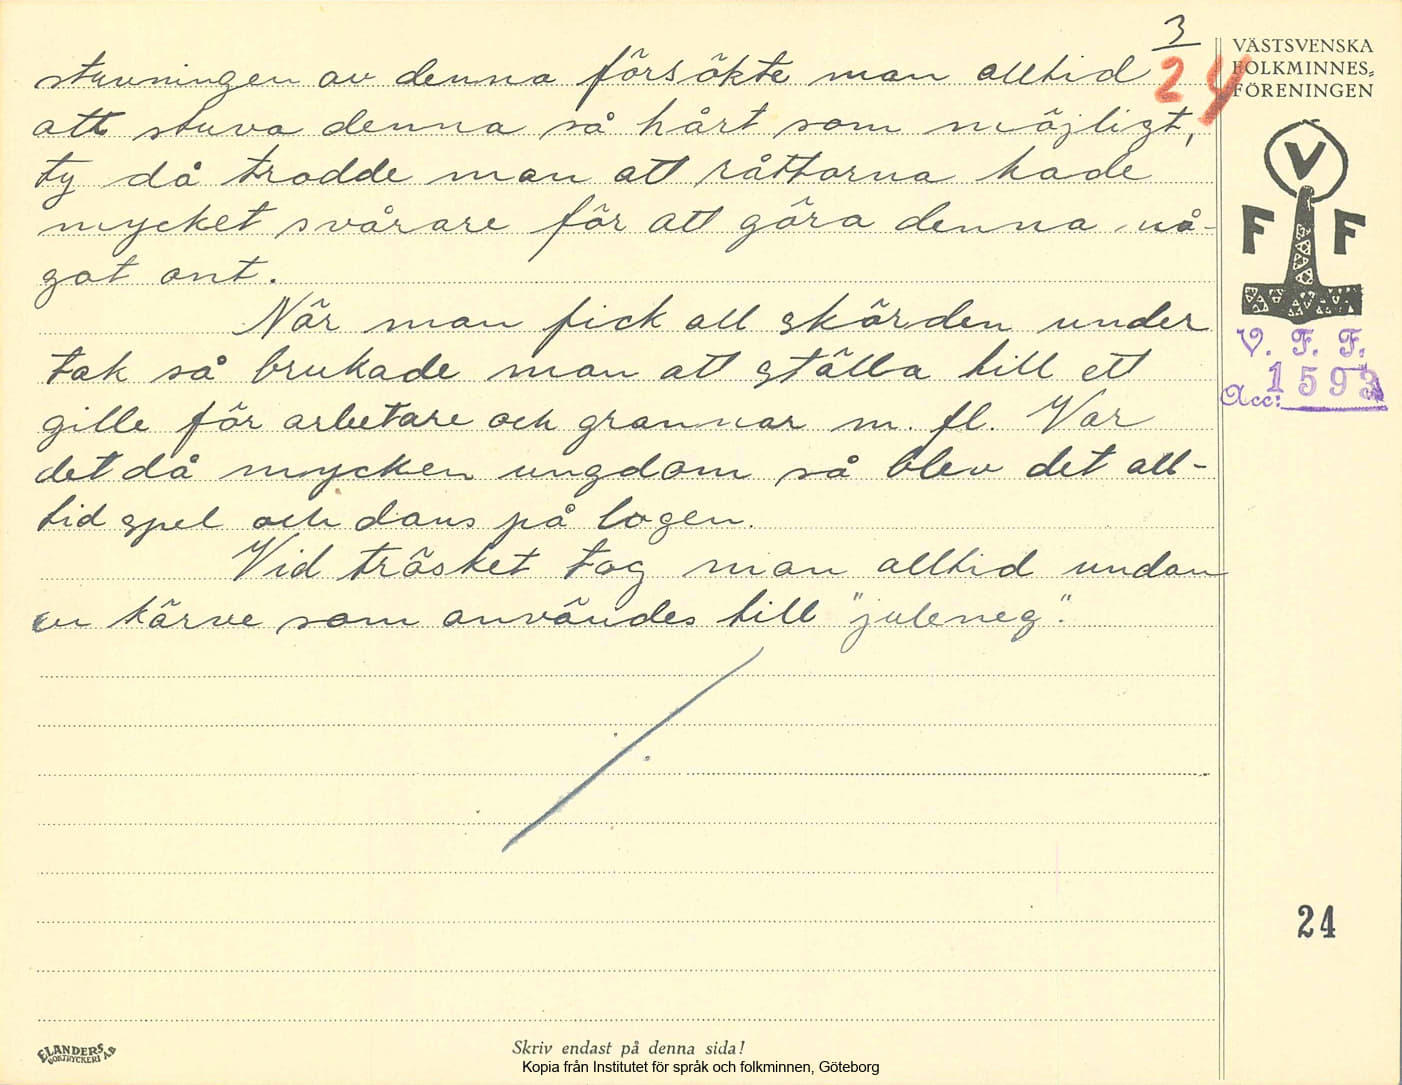 3
24
stuvningen av denna försökte man alltid
att stuva denna så hårt som möjligt,
ty då trodde man att råttorna hade
mycket svårare för att göra denna nå-
got ont.
När man fick all skörden under
tak så brukade man att ställa till ett
gille för arbetare och grannar m. fl. Var
det då mycken ungdom så blev det all-
tid spel och dans på logen.
Vid trösket tog man alltid undan
en kärve som användes till "juleneg".
VÄSTSVENSKA
FOLKMINNES-
FÖRENINGEN
V
F F
V. F. F.
Acc: 1593
24
ELANDERS
BOKTRYCKERI A.B
Skriv endast på denna sida!
Kopia från Institutet för språk och folkminnen, Göteborg